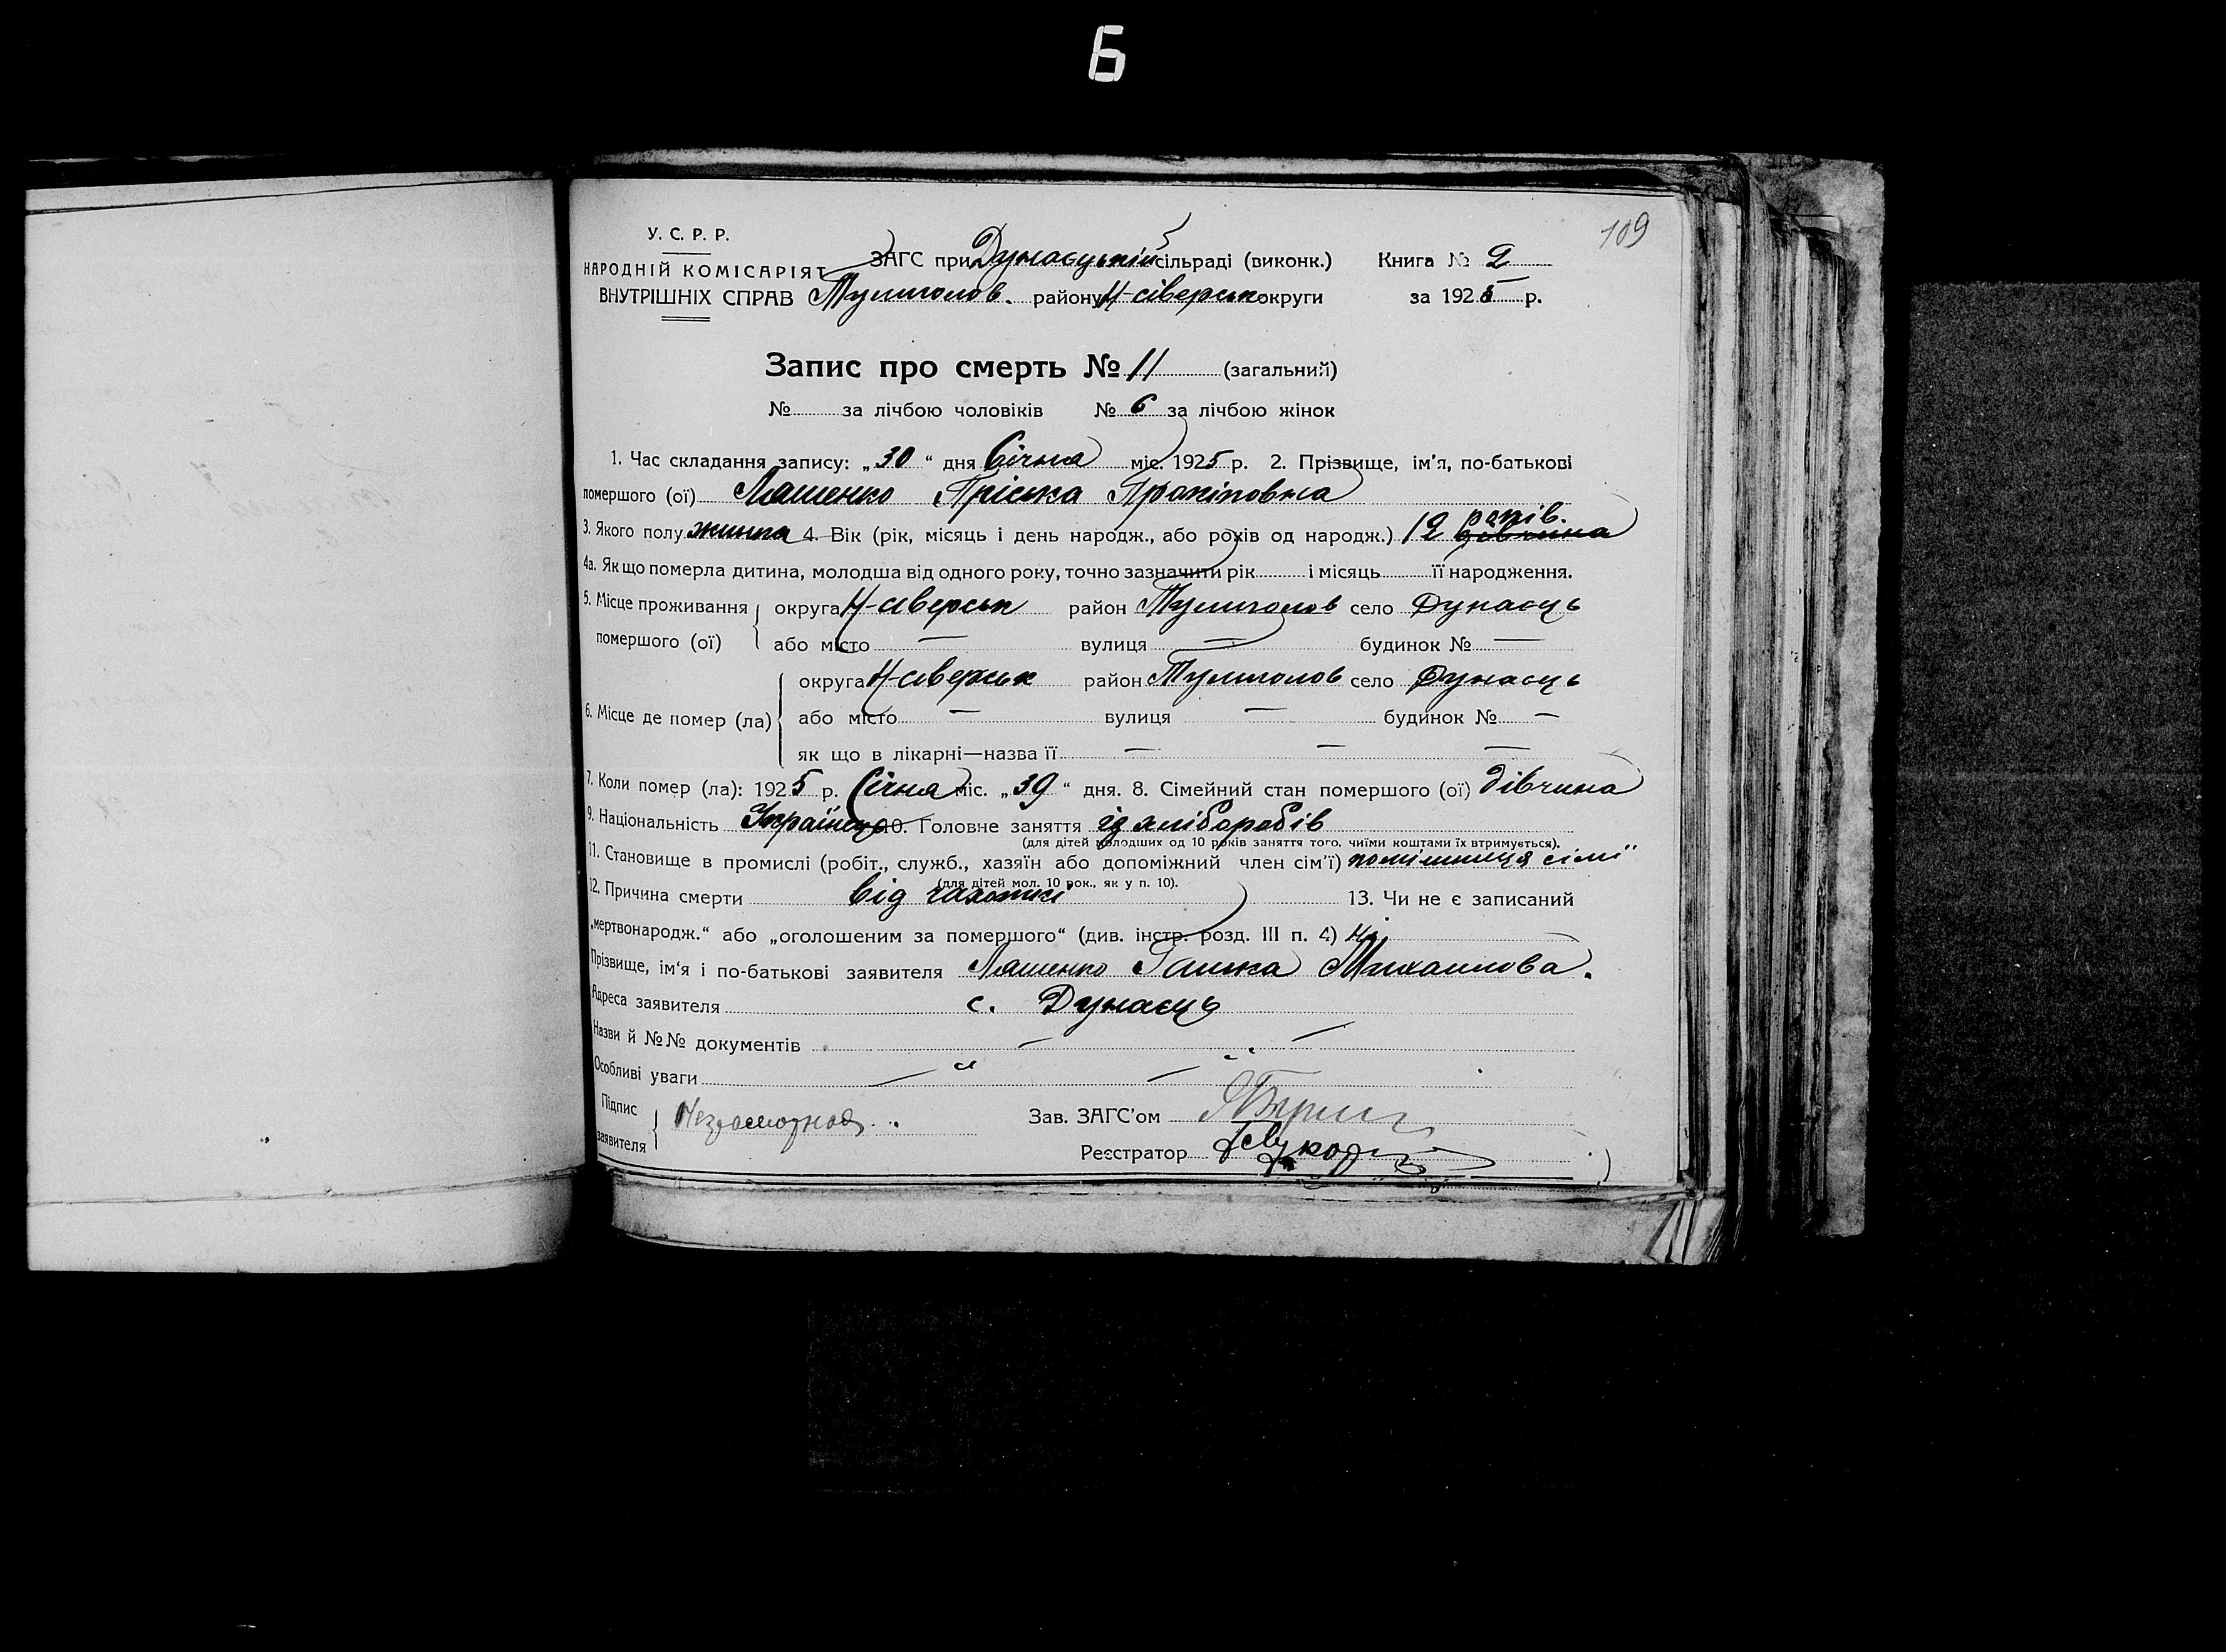 Б
109
У. С. Р. Р.
НАРОДНІЙ КОМІСАРІЯТ ЗАГС при Дунаєцькій сільраді (виконк.) Книга № 2
ВНУТРІШНІХ СПРАВ Тулиголов. району Н-сіверськ округи за 1925 р.
Запис про смерть № 11 (загальний)
№ за лічбою чоловіків № 6 за лічбою жінок
1. Час складання запису: „30“ дня Січня міс. 1925 р. 2. Прізвище, ім'я, по-батькові
помершого (ої) Ляшенко Пріська Прокіповна
3. Якого полу жинка 4. Вік (рік, місяць і день народж., або рохів од народж.) 12 років. дівчина
4а. Як що померла дитина, молодша від одного року, точно зазначити рік і місяць її народження.
5. Місце проживання помершого (ої) округа Н-сіверськ район Тулиголов село Дунаєць
або місто — вулиця — будинок № —
6. Місце де помер (ла) округа Н-сіверськ район Тулиголов село Дунаєць
або місто — вулиця — будинок № —
як що в лікарні—назва її — — —
7. Коли помер (ла): 1925 р. Січня міс. „39“ дня. 8. Сімейний стан помершого (ої) дівчина
9. Національність Українець 10. Головне заняття із хліборобів
(для дітей молодших од 10 років заняття того, чиїми коштами їх втримується).
11. Становище в промислі (робіт., служб., хазяїн або допоміжний член сім'ї) помішниця сімї
(для дітей мол. 10 рок., як у п. 10).
12. Причина смерти від чахотки 13. Чи не є записаний
„мертвонародж.“ або „оголошеним за помершого“ (див. інстр. розд. III п. 4) ні
Прізвище, ім'я і по-батькові заявителя Ляшенко Ганна Михайлова.
Адреса заявителя с. Дунаєць
Назви й №№ документів — —
Особливі уваги — —
Підпис заявителя Незрамотная Зав. ЗАГС'ом
Реєстратор